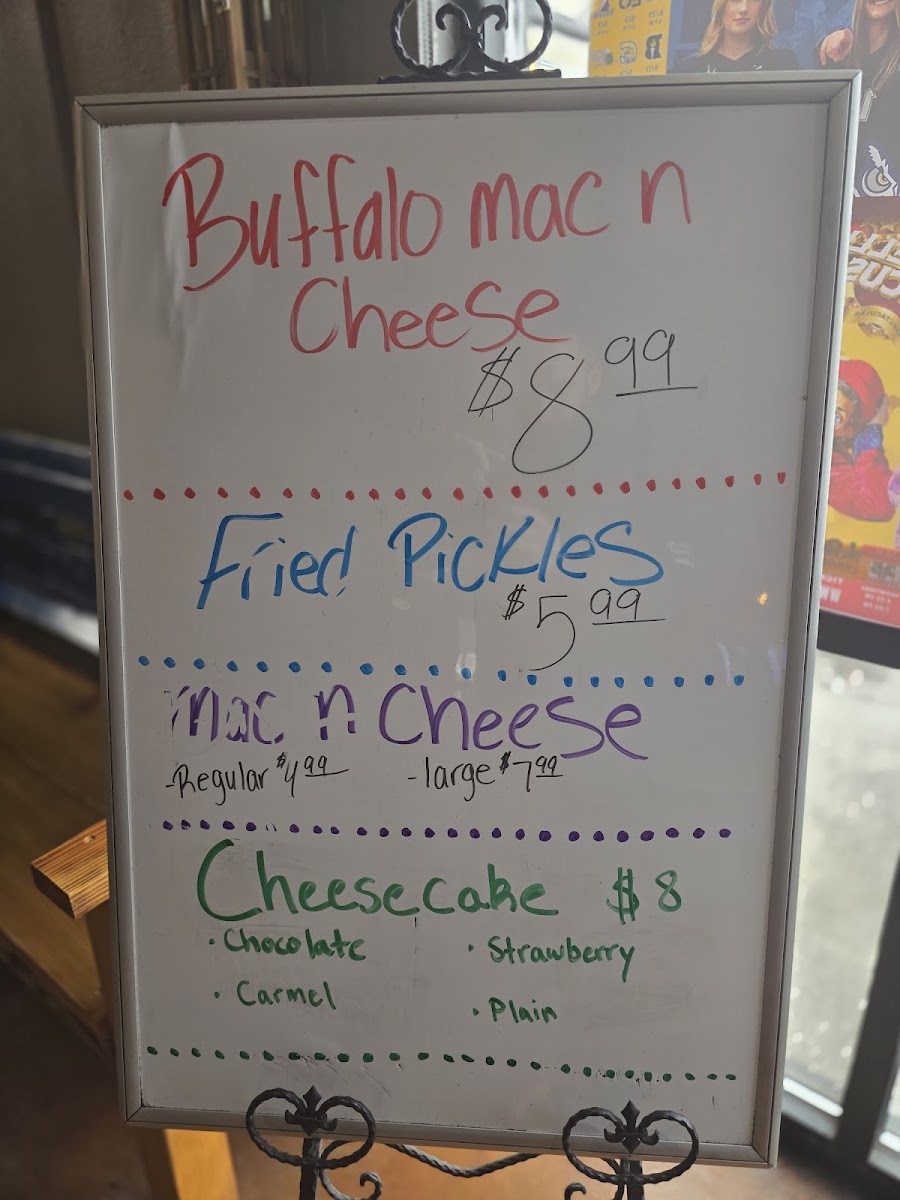 Buffalo mac n
Cheese
$8.99
Fried Pickles
$5.99
Mac n Cheese
-Regular $4.99 -large $7.99
Cheesecake $8
· Chocolate · Strawberry
· Carmel · Plain